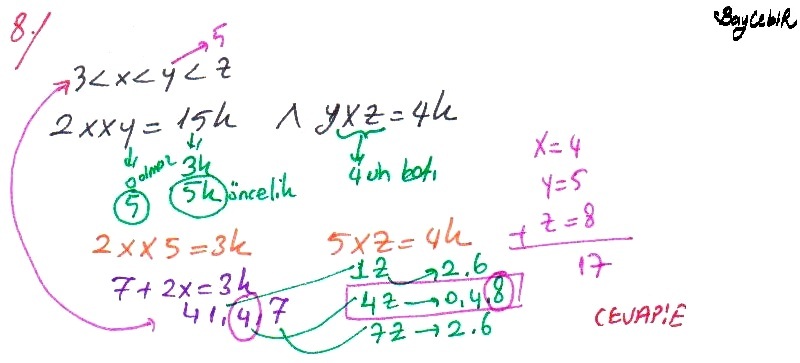 BayCebir
8./
5
3<x<y<z
2xxy=15k ∧ yxz=4k
olmaz 3k
5 5k öncelik
4 ün katı
x=4
y=5
+ z=8
17
2xx5=3k 5xz=4k
7+2x=3k
1,4,7
1z→2.6
4z→0,4,8
7z→2.6
CEVAP:E